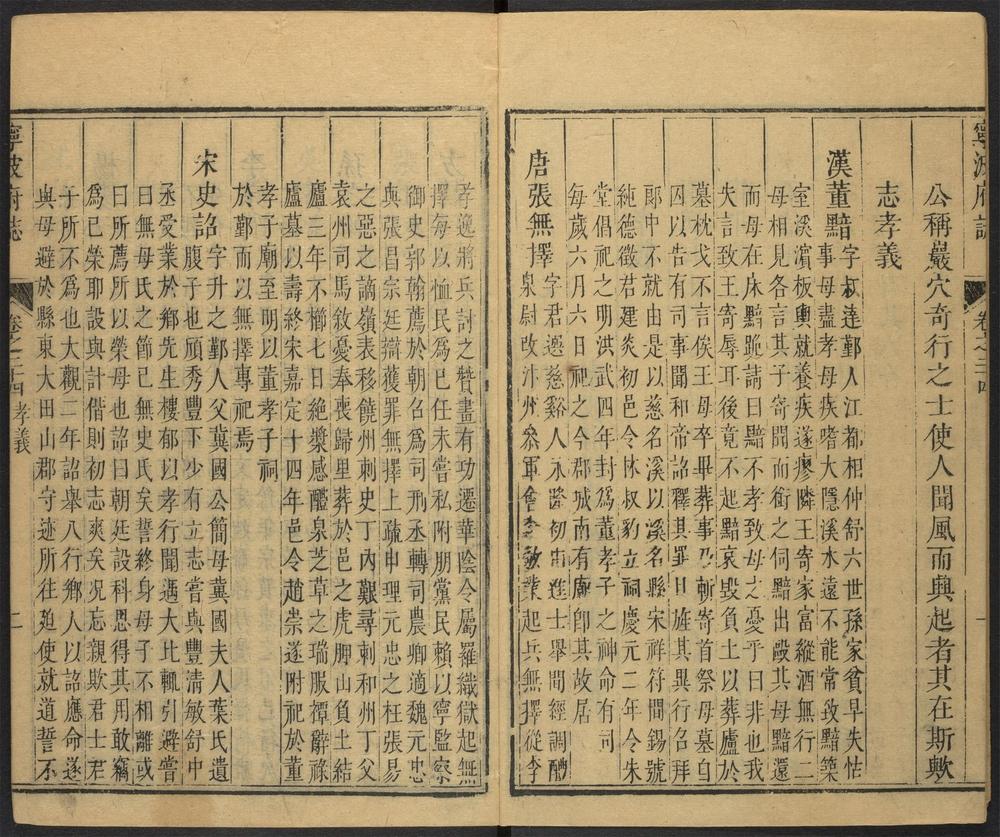 寧波府誌
卷之三十四
一
公稱巖穴奇行之士使人聞風而興起者其在斯歟
志孝義
漢董黯字叔達鄞人江都相仲舒六世孫家貧早失怙
事母盡孝母疾嗜大隱溪水遠不能常致黯築
室溪濵板輿就養疾遂瘳隣王寄家富縱酒無行二
母相見各言其子寄聞而銜之伺黯出毆其母黯還
而母在床黯跪請曰黯不孝致母之憂乎曰非也我
失言致王寄辱耳後竟不起黯哀毀負土以葬廬於
墓枕戈不言俟王母卒畢葬事乃斬寄首祭母墓自
囚以告有司事聞和帝詔釋其罪且旌其異行召拜
郎中不就由是以慈名溪以溪名縣宋祥符間錫號
純德徵君建炎初邑令林叔豹立祠慶元二年令朱
堂倡祀之明洪武四年封爲董孝子之神命有司
每歲六月六日祀之今郡城南有廟卽其故居
唐張無擇字君選慈谿人永隆初甫進士舉間經調醴
泉尉改汴州叅軍會李敬業起兵無擇從李
孝逸將兵討之贊畫有功遷華陰令屬羅織獄起無
擇每以恤民爲己任未嘗私附朋黨民賴以寧監察
御史郭翰薦於朝召爲司刑丞轉司農卿適魏元忠
與張昌宗廷辯獲罪無擇上疏申理元忠之枉張易
之惡之謫嶺表移饒州刺史丁內艱尋刺和州丁父
袁州司馬敘憂奉喪歸里葬於邑之虎脚山負土結
廬三年不櫛七日絶漿感醴泉芝草之瑞服禫辭祿
廬墓以壽終宋嘉定十四年邑令趙崇遂附祀於董
孝子廟至明以董孝子祠
於鄞而以無擇專祀焉
宋史詔字升之鄞人父冀國公簡母冀國夫人葉氏遺
腹子也頎秀豐下少有立志嘗與豐清敏舒中
丞受業於鄉先生樓郁以孝行聞遇大比輒引避嘗
曰無母氏之節已無史氏矣誓終身母子不相離或
曰所薦所以榮母也詔曰朝廷設科恩得其用敢竊
爲已榮耶設與計偕則初志爽矣况忘親欺君士君
子所不爲也大觀二年詔舉八行鄉人以詔應命遂
與母避於縣東大田山郡守迹所往廹使就道誓不
寧波府誌
卷之三十四 孝義
二